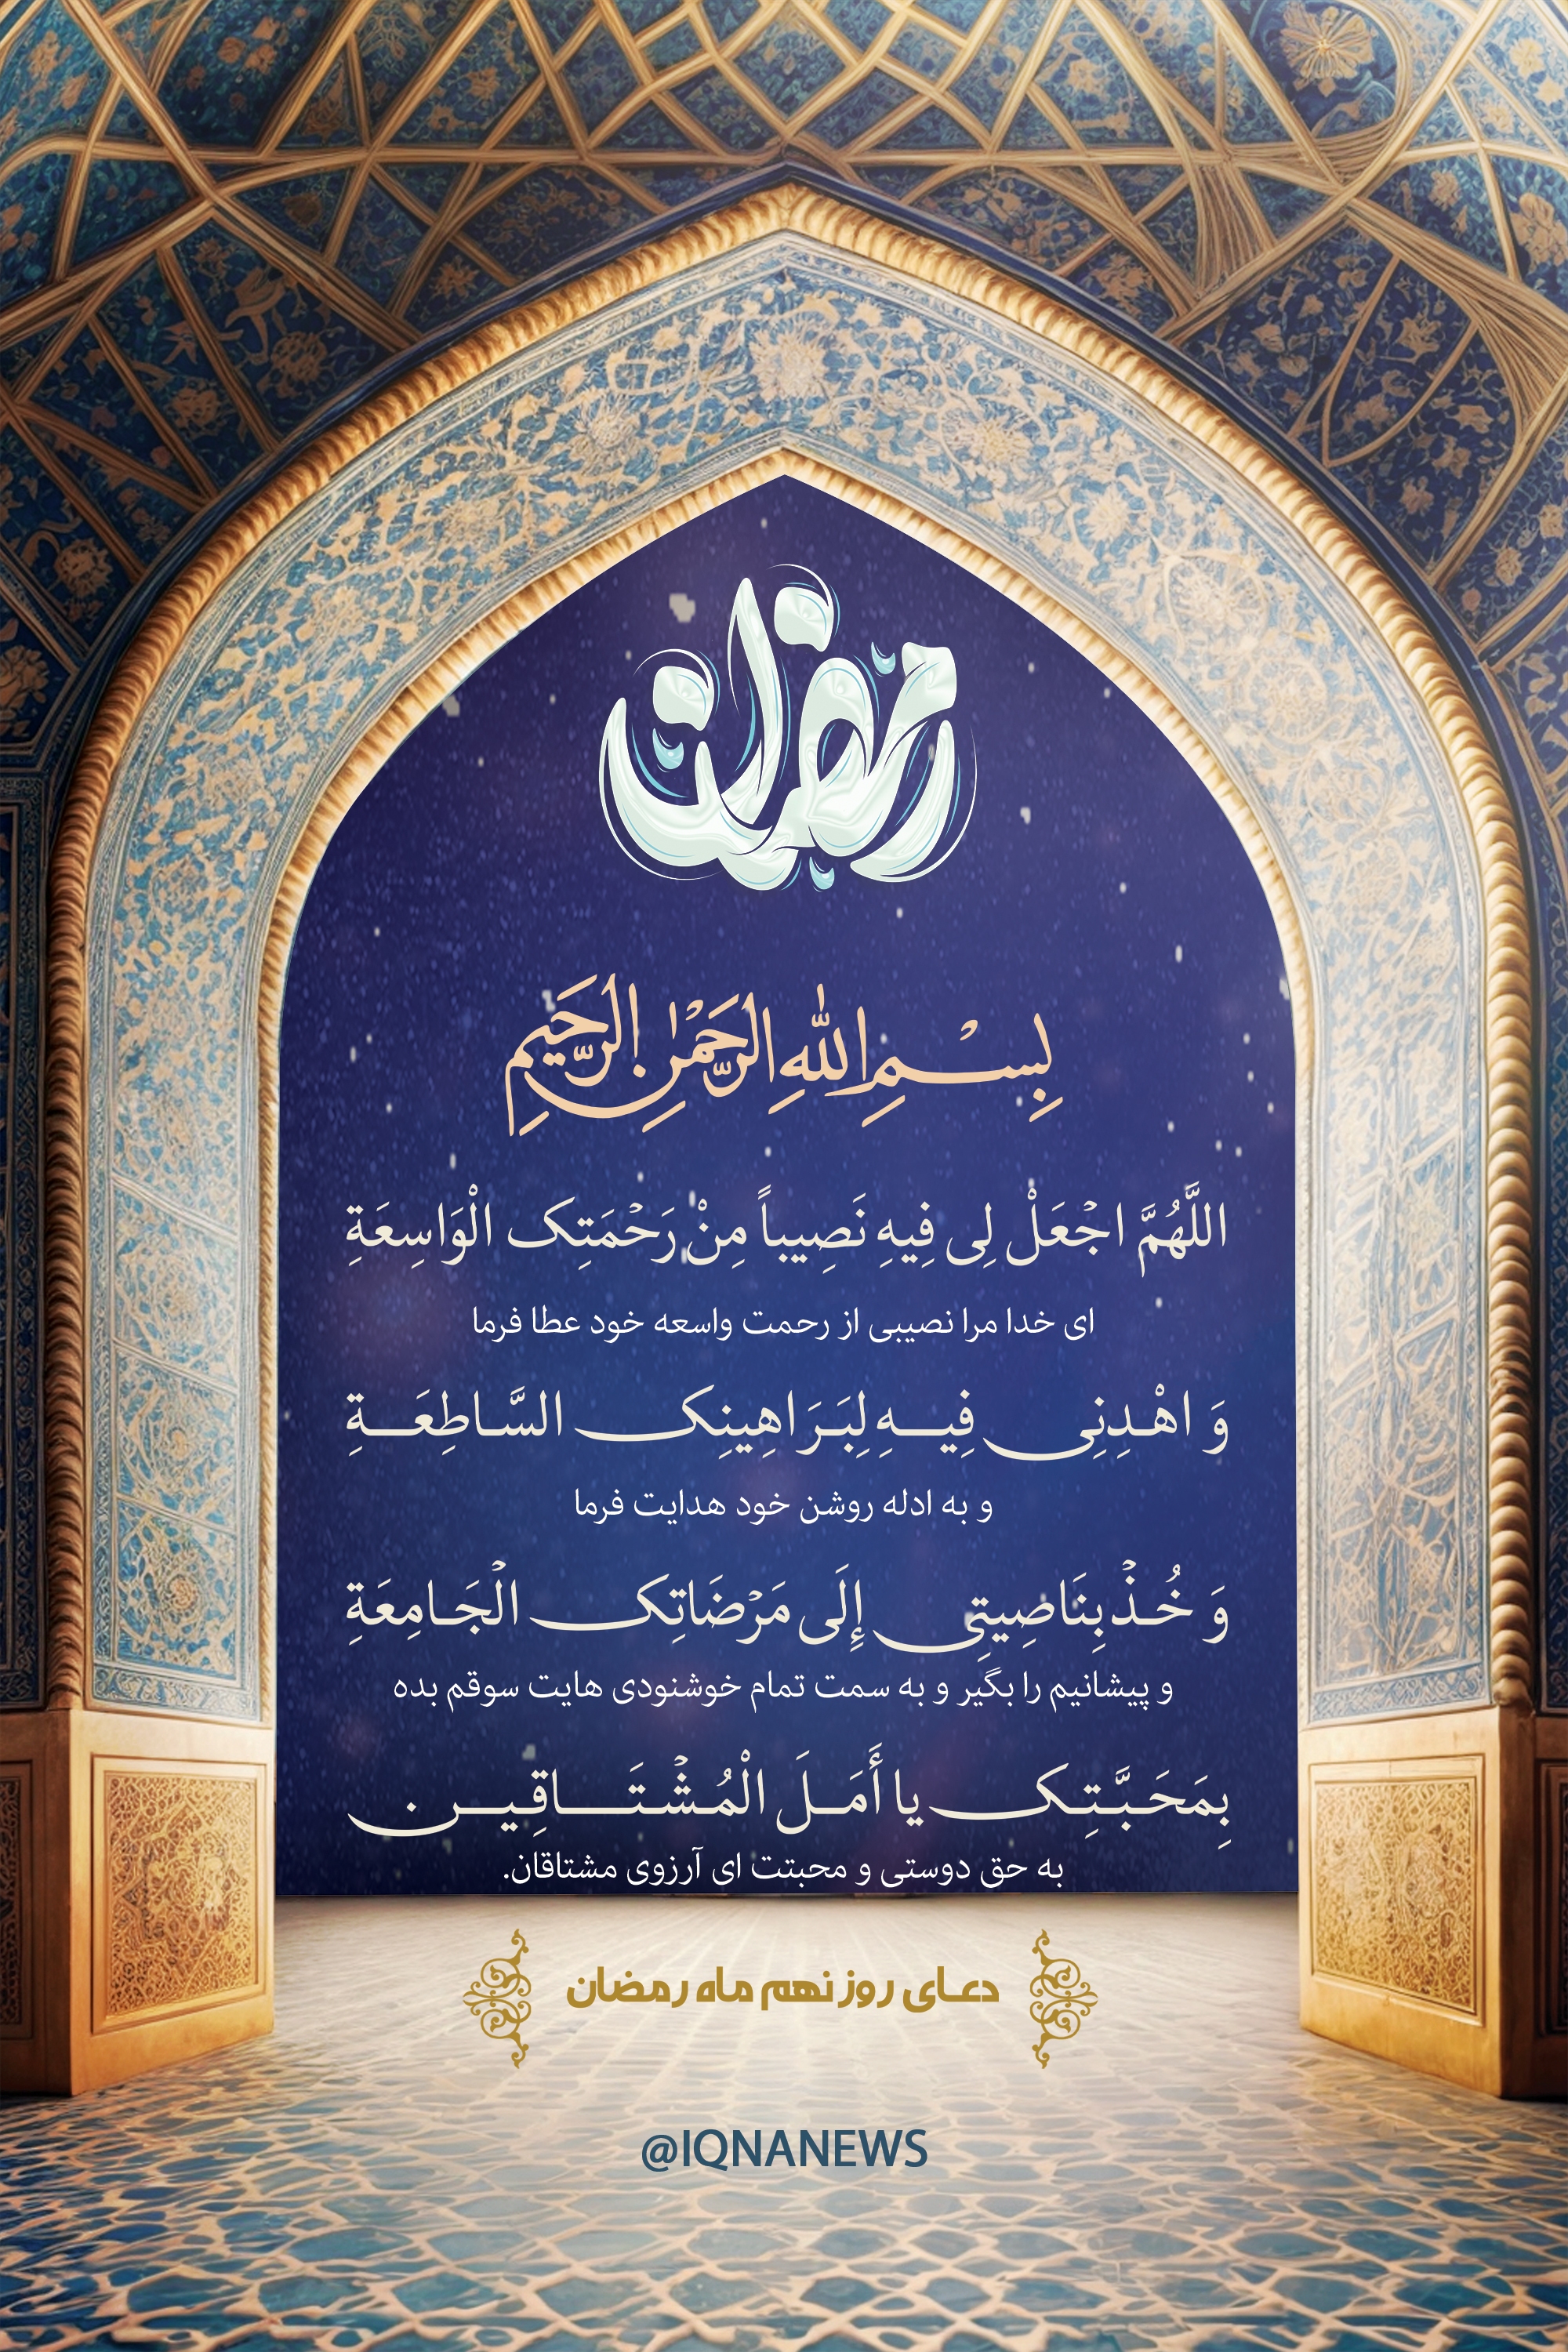 رمضان
بِسْمِ اللهِ الرَّحْمٰنِ الرَّحِيمِ
اللَّهُمَّ اجْعَلْ لِی فِیهِ نَصِیباً مِنْ رَحْمَتِک الْوَاسِعَةِ
ای خدا مرا نصیبی از رحمت واسعه خود عطا فرما
وَ اهْدِنِی فِیهِ لِبَرَاهِینِک السَّاطِعَةِ
و به ادله روشن خود هدایت فرما
وَ خُذْ بِنَاصِیتِی إِلَی مَرْضَاتِک الْجَامِعَةِ
و پیشانیم را بگیر و به سمت تمام خوشنودی هایت سوقم بده
بِمَحَبَّتِک یا أَمَلَ الْمُشْتَاقِین
به حق دوستی و محبتت ای آرزوی مشتاقان.
دعای روز نهم ماه رمضان
@IQNANEWS